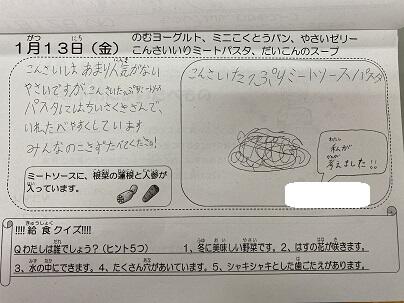 1月13日（金） のむヨーグルト、ミニこくとうパン、やさいゼリー
こんさいいりミートパスタ、だいこんのスープ
こんさいは、あまり人気がない
やさいですが、こんさいたっぷりミートソース
パスタにはちいさくきざんで、
いれたべやすくしています
みんなのこさずたべてください!
ミートソースに、根菜の蓮根と人参が
入っています。
こんさいたっぷりミートソースパスタ
わたし
私が
考えました!!
きゅうしょく
!!!! 給 食 クイズ!!!!
Qわたしは誰でしょう?（ヒント5つ） 1、冬に美味しい野菜です。 2、はすの花が咲きます。
3、水の中にできます。 4、たくさん穴があいています。 5、シャキシャキとした歯ごたえがあります。